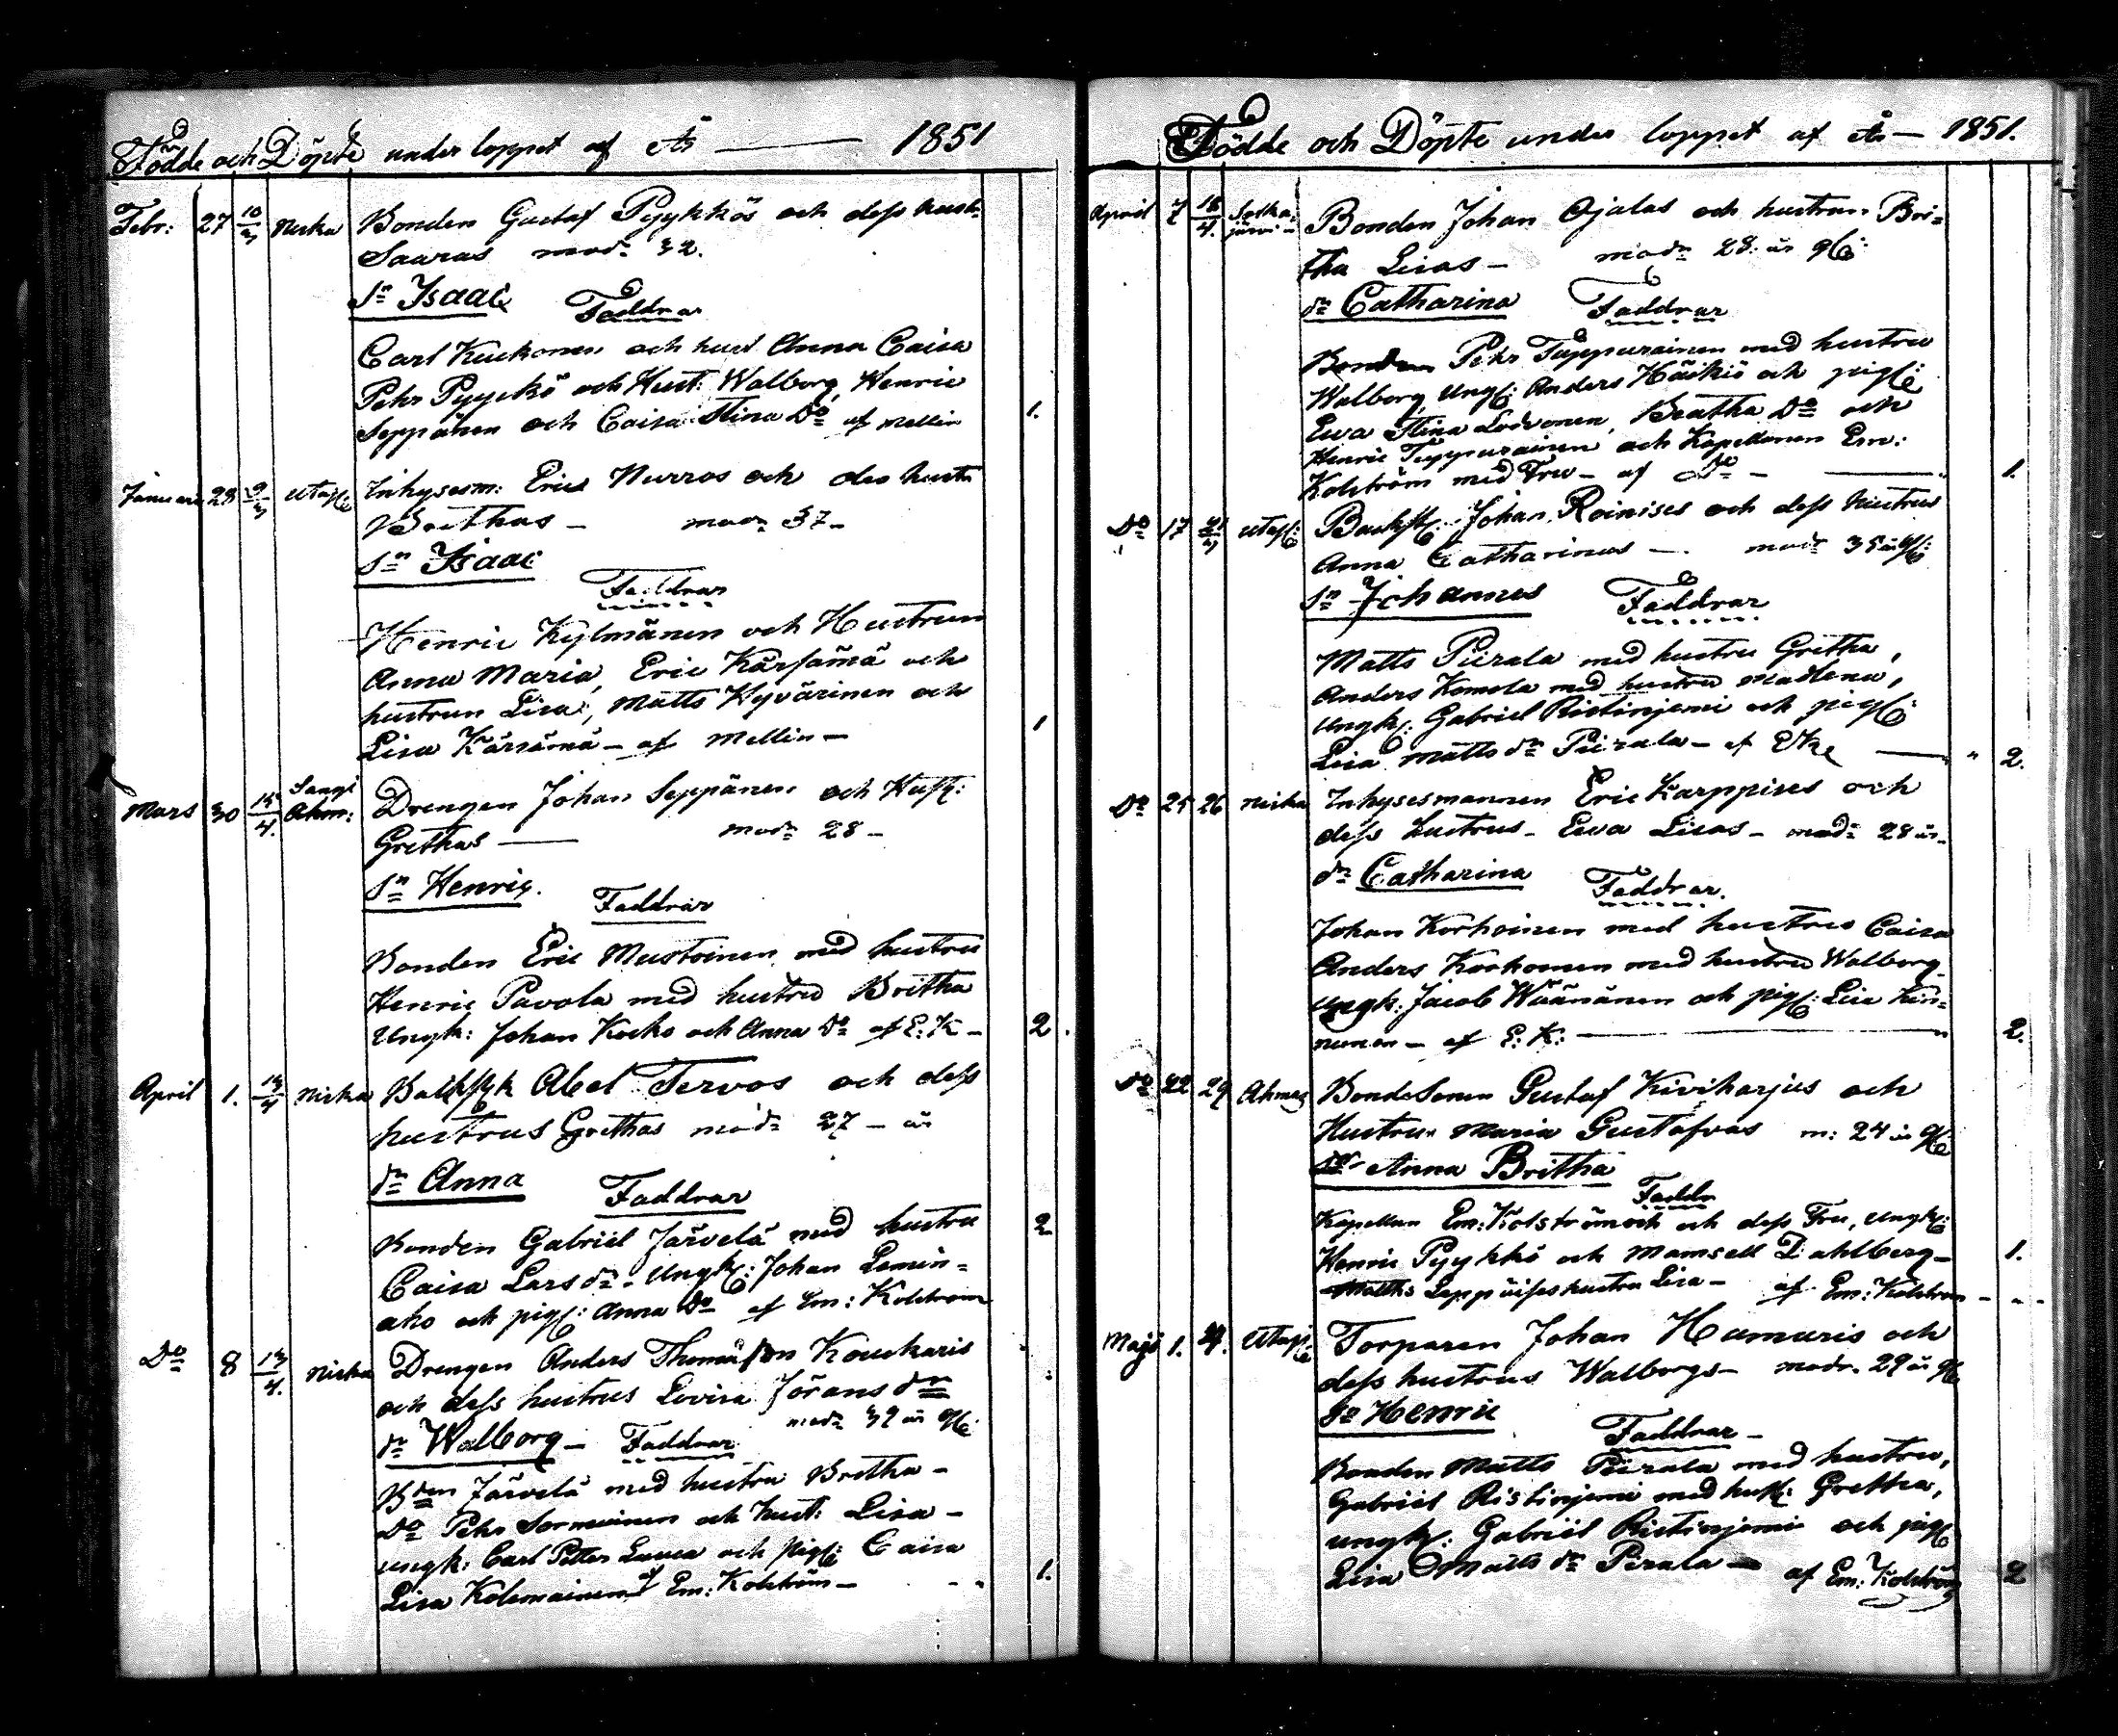 Födde och Döpte under loppet af År — 1851
Febr: 27 10/3 Niska Bonden Gustaf Pyykkös och dess hust:
Saaras modr 32.
Sn Isaac Faddrar
Carl Kuckonen och hust Anna Caisa
Pehr Pyyckö och Hust: Walborg, Henric
Seppänen och Caisa Stina Do af Mellin 1.
Januari 28 9/3 Utaj: Inhysesm: Eric Nurros och des hustr
Brithas — modr 37 —
Sn Isaac
Faddrar
Henric Kylmänen och Hustrun
Anna Maria, Eric Kärsämä och
hustrun Lisa, Matts Hyvärinen och
Lisa Kärsämä — af Mellin — 1
Mars 30 14/4. Sangi Ahon: Drengen Johan Seppänen och Hust:
Grethas — modr 28 —
Sn Henric.
Faddrar
Bonden Eric Mustoinen med hustru
Henric Pavola med hustru Britha
Ungk: Johan Kocko och Anna Do af E: K — 2.
April 1. 13/4 Niska Abel Tervos och dess
hustrus Grethas modr 27 — år
dr Anna
Faddrar
Bonden Gabriel Järvelä med hustru 2
Caisa Lars dr — Ungk: Johan Lemin=
aho och pig: Anna Do af Em: Kolström
Do 8 13/4. Niska Drengen Anders Thomasson Kouckaris
och dess hustrus Lovisa Jörans dr
modr 39 år
dr Walborg — Faddrar
Bden Järvelä med hustru Britha —
Do Pehr Sormuinen och hust: Lisa —
ungk: Carl Petter och pig: Caisa
Lisa Kolemainen af Em: Kolström — 1.
Födde och Döpte under loppet af År — 1851.
April 7 18/4. Bonden Johan Ojalas och hustrun Bri=
tha Lisas — modr 28 år
dr Catharina Faddrar
Bonden Pehr Tuppurainen med hustru
Walborg, Ungk: Anders Häikiö och pig:
Ewa Stina Lodvonen, Beatha Do och
Henric Tuppurainen och Kapellanen Em:
Kolström med Fru — af Do — 1.
Do 17 21/4 Utaj: Johan Roinises och dess hustrus
Anna Catharinas — modr 35 år
Sn Johannes Faddrar
Matts Piirala med hustru Gretha,
Anders Komola med hustru Madlena,
Ungk: Gabriel Ristinjemi och pig:
Lisa Matts dr Piirala — af EK 2.
Do 25 26 Niska Inhysesmannen Eric Karppises och
dess hustrus — Ewa Lisas — modr 28 år —
dr Catharina
Faddrar.
Johan Korhoinen med hustru Caisa
Anders Korhonen med hustru Walborg
Ungk: Jacob Wäänänen och pig: Lisa Kin=
nunen — af E: K: 2.
Do 22 29 Ahmas BondeSonen Gustaf Kivikarjus och
Hustrun Maria Gustafvas m: 24 år
dr Anna Britha
Faddr
Kapellan Em: Kolström och dess Fru, Ungk:
Henric Pyykkö och Mamsell Dahlberg — 1.
Matths Leppäises hustru Lisa — af Em: Kolström
Maji 1. 4. Utaj: Torparen Johan Hamaris och
dess hustrus Walborgs — modr 29 år
Sn Henric
Faddrar —
Bonden Matts Piirala med hustru,
Gabriel Ristinjemi med hust: Gretha,
ungk: Gabriel Ristinjemi och pig:
Lisa Matts dr Pirala — af Em: Kolström 2